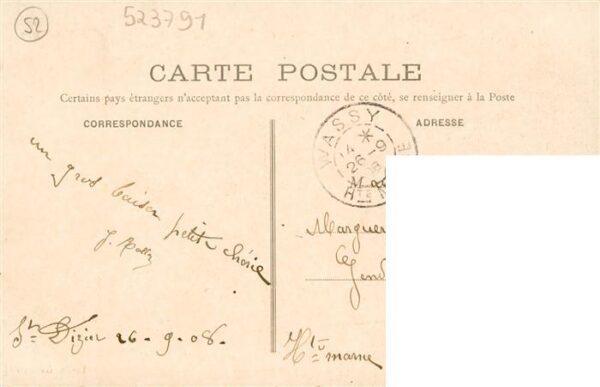 52
523791
CARTE POSTALE
Certains pays étrangers n'acceptant pas la correspondance de ce côté, se renseigner à la Poste
CORRESPONDANCE
ADRESSE
WASSY
Hte
un gros baiser petite chérie
St Dizier 26-9-08.
Marguer
Gend
Hte marne